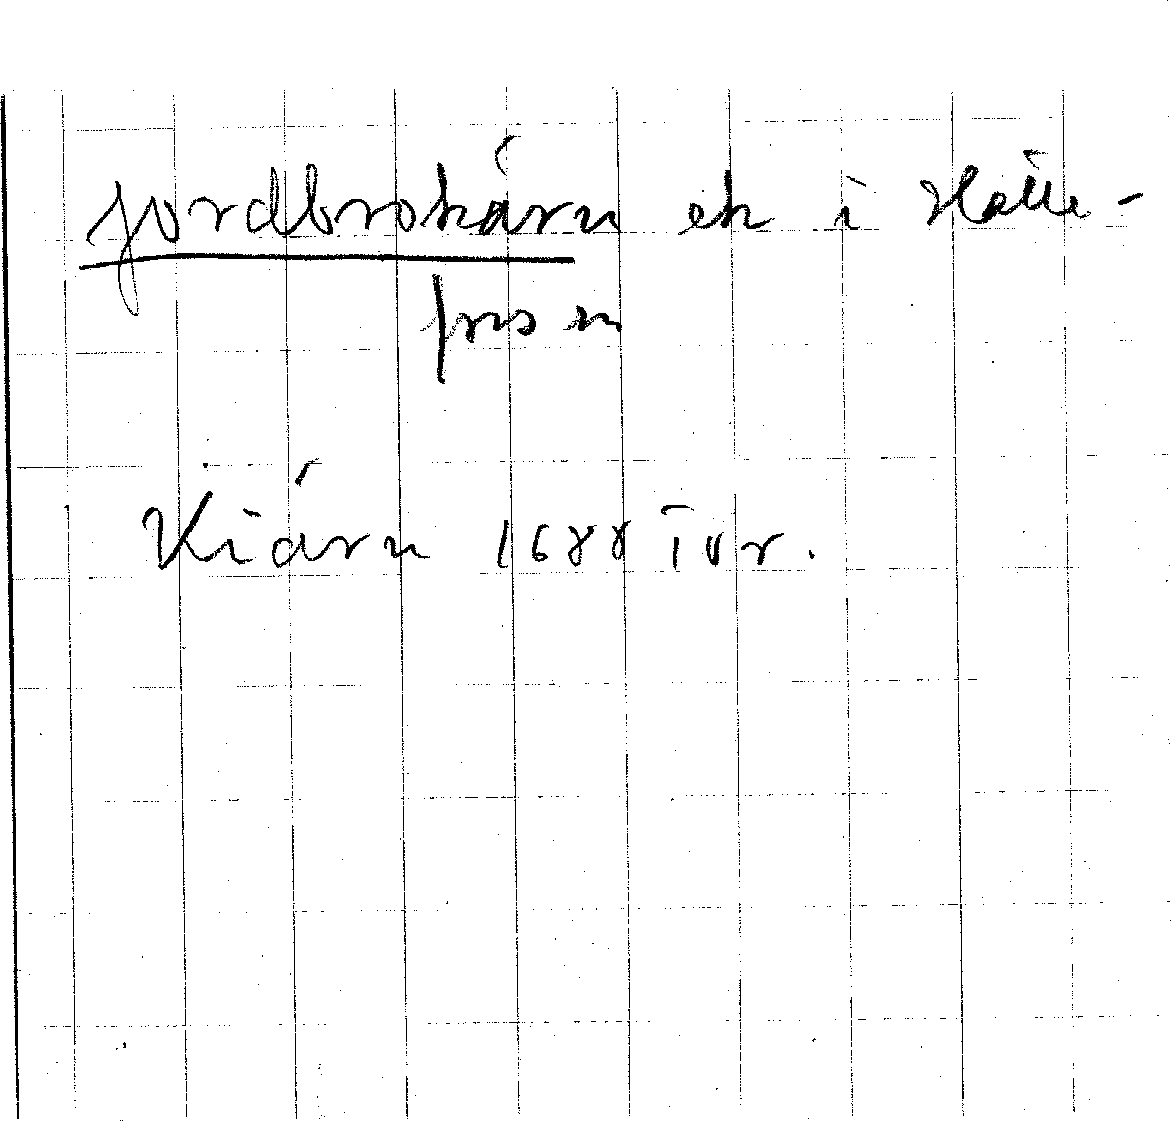 jordbrokáru ek i Hølle-
prs m
Kiáru 1688 IV r.